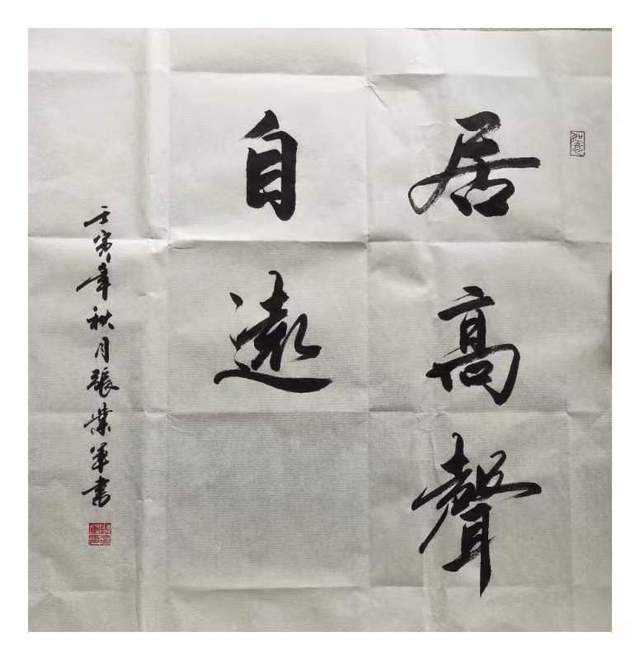 居高聲
自遠
壬寅年秋月張業軍書